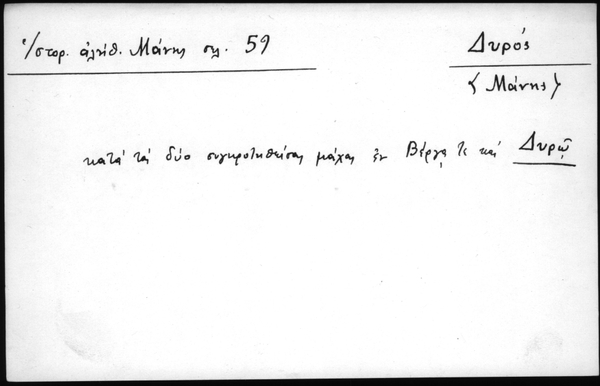 Ἱστορ. ἀλήθ. Μάνης σελ. 59
Δυρός
〈Μάνης〉
κατά τάς δύο συγκροτηθείσας μάχας ἐν Βέργᾳ τε καί Δυρῷ